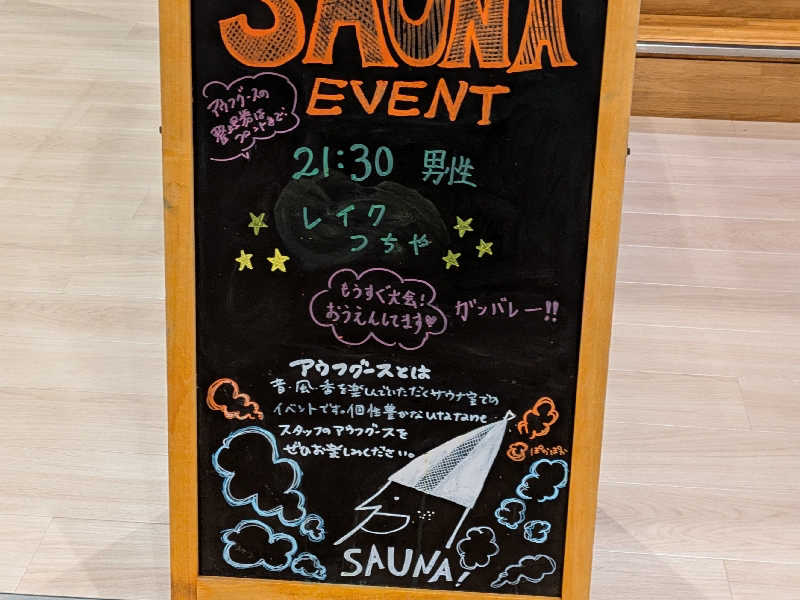 SAUNA
EVENT
アウフグースの
整理券は
フロントまで!
21:30 男性
レイク
つちや
もうすぐ大会!
おうえんしてます♥
ガンバレー!!
アウフグースとは
音・風・香を楽しんでいただくサウナ室での
イベントです。個性豊かなutatane
スタッフのアウフグースを
ぜひお楽しみください。
ぽかぽか
SAUNA!